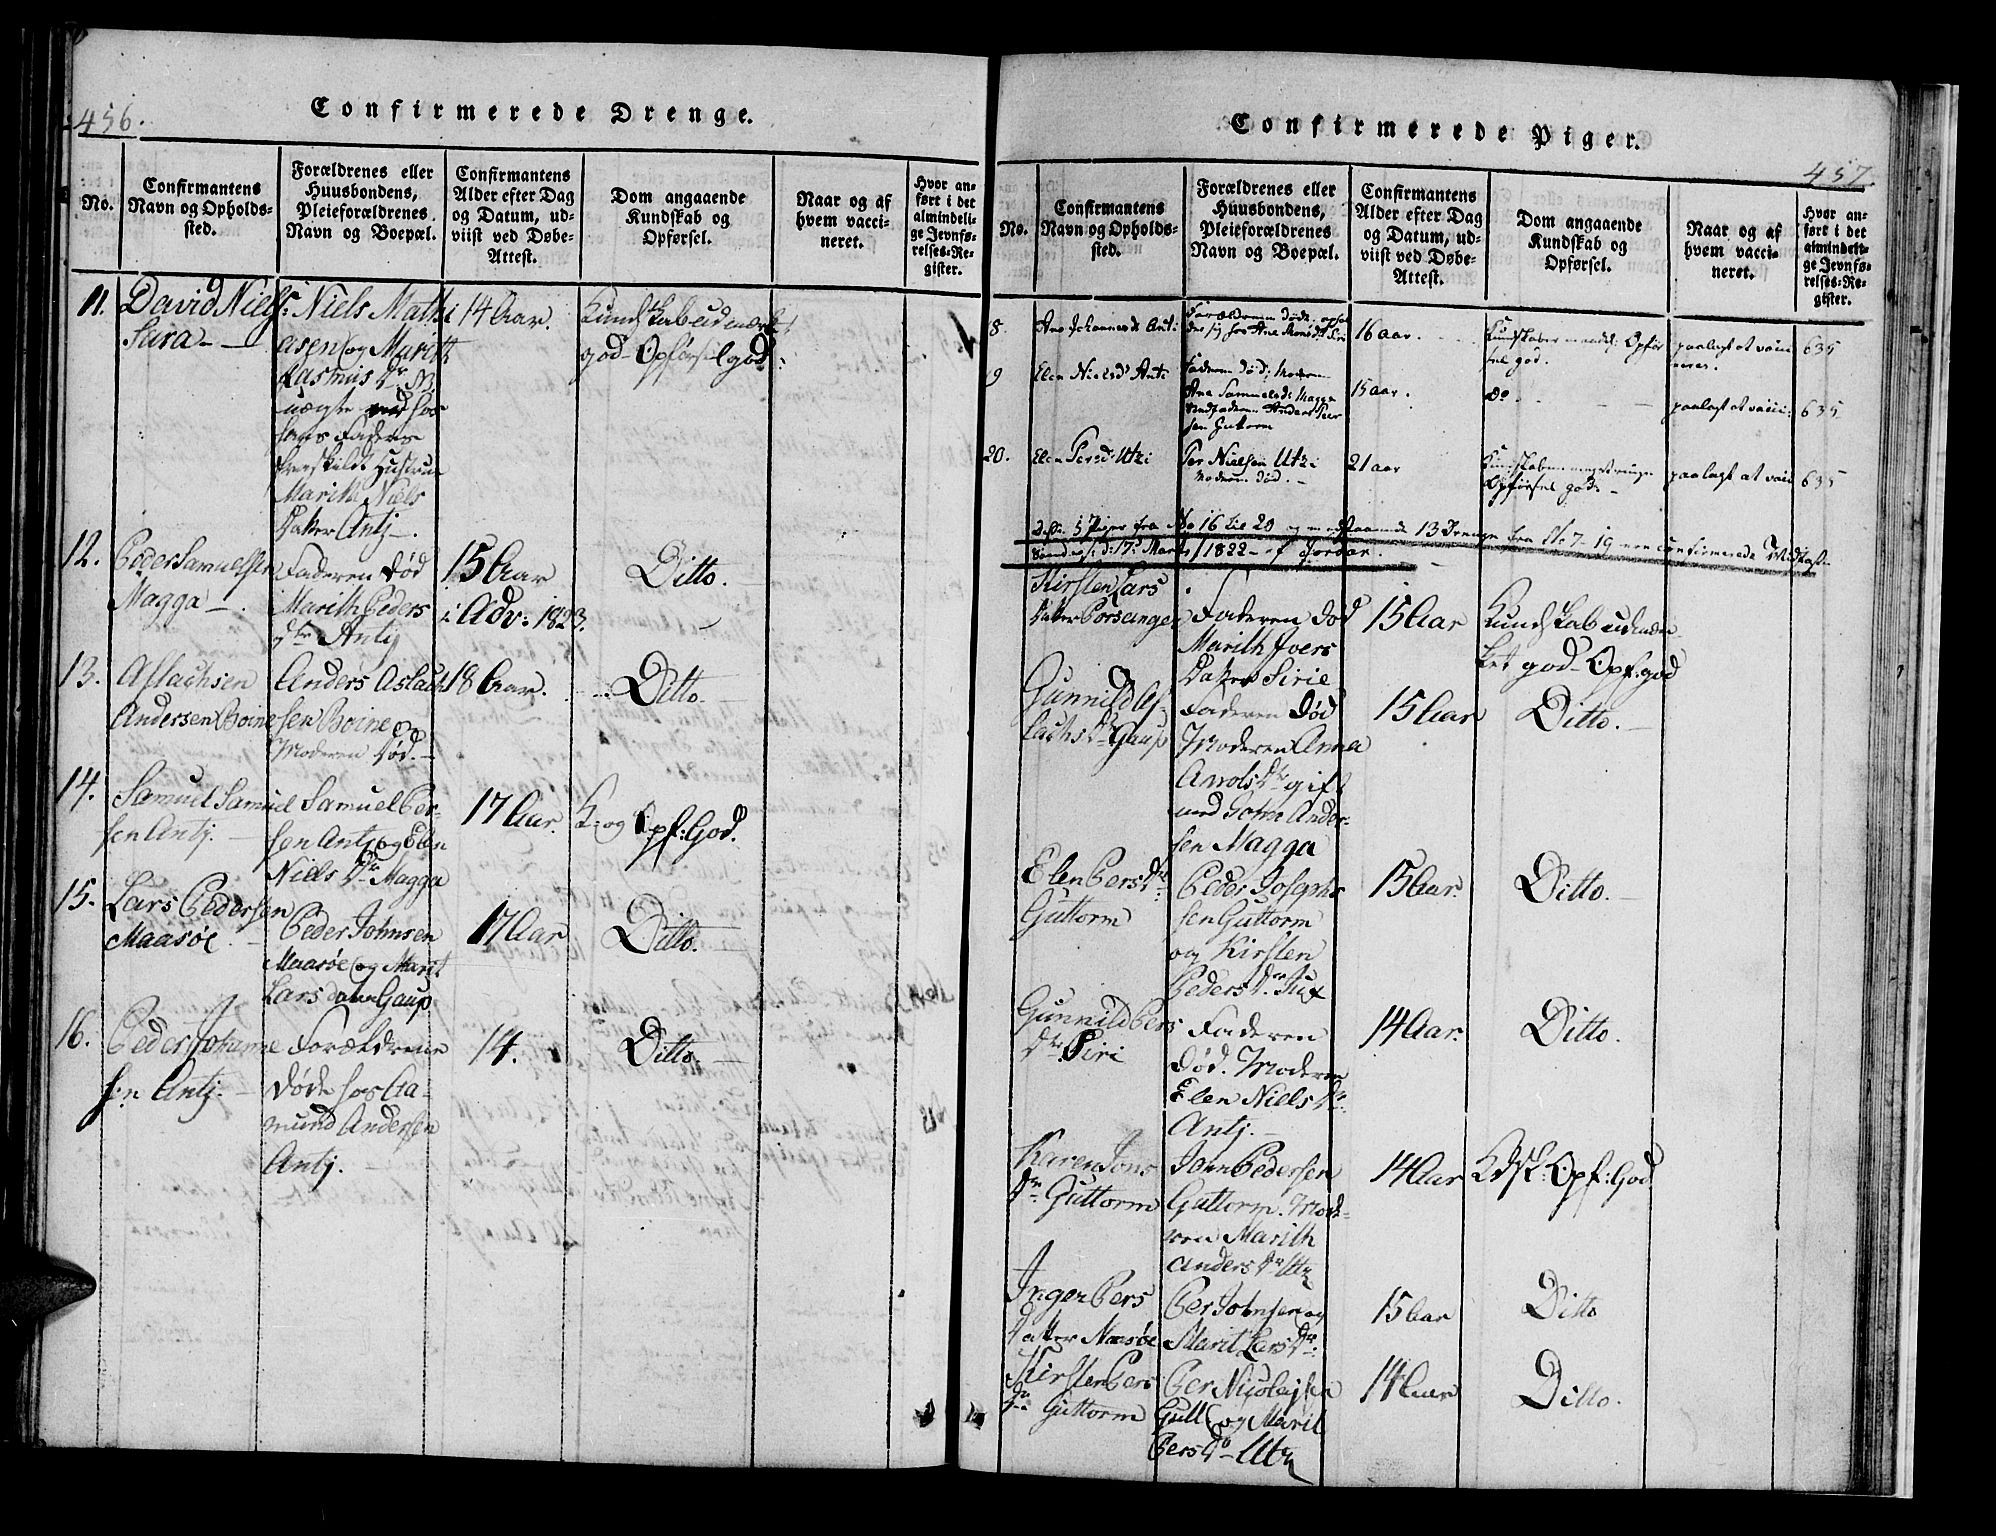 456.
Confirmerede Drenge.
No.
Confirmantens
Navn og Opholds-
sted.
Forældrenes eller
Huusbondens,
Pleieforældrenes
Navn og Boepæl.
Confirmantens
Alder efter Dag
og Datum, ud-
viist ved Døbe-
Attest.
Dom angaaende
Kundskab og
Opførsel.
Naar og af
hvem vacci-
neret.
Hvor an-
ført i det
almindeli-
ge Jevnfø-
relses-Re-
gister.
11.
David Niels:
Sara —
Niels Mathi
asen og Marith
Rasmus Dr.
Faderens
fraskildt Hustrue
Marith Niels
Datter Antj —.
14 Aar.
Kundskab udmærket
god – Opførsel god
12.
Peder Samuelsen
Magga —.
Faderen død
Marith Peders
dtr Antj
15 Aar
i Adv: 1823.
Ditto.
13.
Aslachsen
Andersen Boine
Anders Aslach
sen Boine og
Moderen død. —
18 Aar.
Ditto. —
14.
Samuel Samuel
sen Antj. —
Samuel Per-
sen Antj og Elen
Niels Dr Magga
17 Aar.
K: og Opf: God.
15.
Lars Pedersen
Maasøe
Peder Johnsen
Maasøe og Marit
Lars datter Gaup
17 Aar
Ditto.
16.
Peder Johanne
sen Antj. —
Forældrene
døde hos Aa-
mund Andersen
Antj.
14.
Ditto. —
457.
Confirmerede Piger.
No.
Confirmantens
Navn og Opholds-
sted.
Forældrenes eller
Huusbondens,
Pleieforældrenes
Navn og Boepæl.
Confirmantens
Alder efter Dag
og Datum, ud-
viist ved Døbe-
Attest.
Dom angaaende
Kundskab og
Opførsel.
Naar og af
hvem vacci-
neret.
Hvor an-
ført i det
almindeli-
ge Jevnfø-
relses-Re-
gister.
8.
Ane Johannesd: Anti
Forældrene døde, ophol
der sig hos Ane
16 aar.
Kundskaber maadel: Opfør
sel god.
paalagt at vacci
neres.
635
9
Elen Nielsd: Anti
Faderen død; Moderen
Ane Samuelsd: Magga
Stedfaderen Anders Peer
sen Gutorm
15 aar.
do.
paalagt at vacci:
635
20.
Elen Persd: Utzi
Per Nielsen Utzi
Moderen død. —
21 aar
Kundskaben meget ringe
Opførsel god. —
paalagt at vacci
635
Disse 5 Piger fra No 16 til 20 og modstaaende 13 Drenge fra No 7 – 19 ere confirmerede Midfaste
Søndag d: 17d Marts 1822 – af Jordan.
Kirsten Lars
Datter Porsanger
Faderen død
Marith Ivers
Datter Sirie
15 Aar
Kundskab udmær-
ket god – Opf: god
Gunnild As-
lachs Dr Gaup
Faderen død
Moderen Anna
Arrols Dtr gift
med Gone Ander-
sen Magga
15 Aar
Ditto. —
Elen Pers Dtr:
Guttorm
Peder Josephs
sen Guttorm
og Kirsten
Peders Dr. Jux
15 Aar
Ditto. —
Gunnild Pers
Dtr. Siri
Faderen
død. Moderen
Elen Niels Dtr:
Antj. —
14 Aar.
Ditto.
Karen Jons
Dr Guttorm
John Pedersen
Guttorm. Mode-
ren Marith
Anders Dr Utz
14 Aar
Kdsk: Opf: God
Inger Pers
Datter Maasøe
Per Johnsen og
Marit Lars Dtr:
15 Aar
Ditto
Kirsten Pers
Dr. Guttorm
Per Nicolajsen
Gutt og Marit
Pers Dtr Utzi
14 Aar
Ditto.